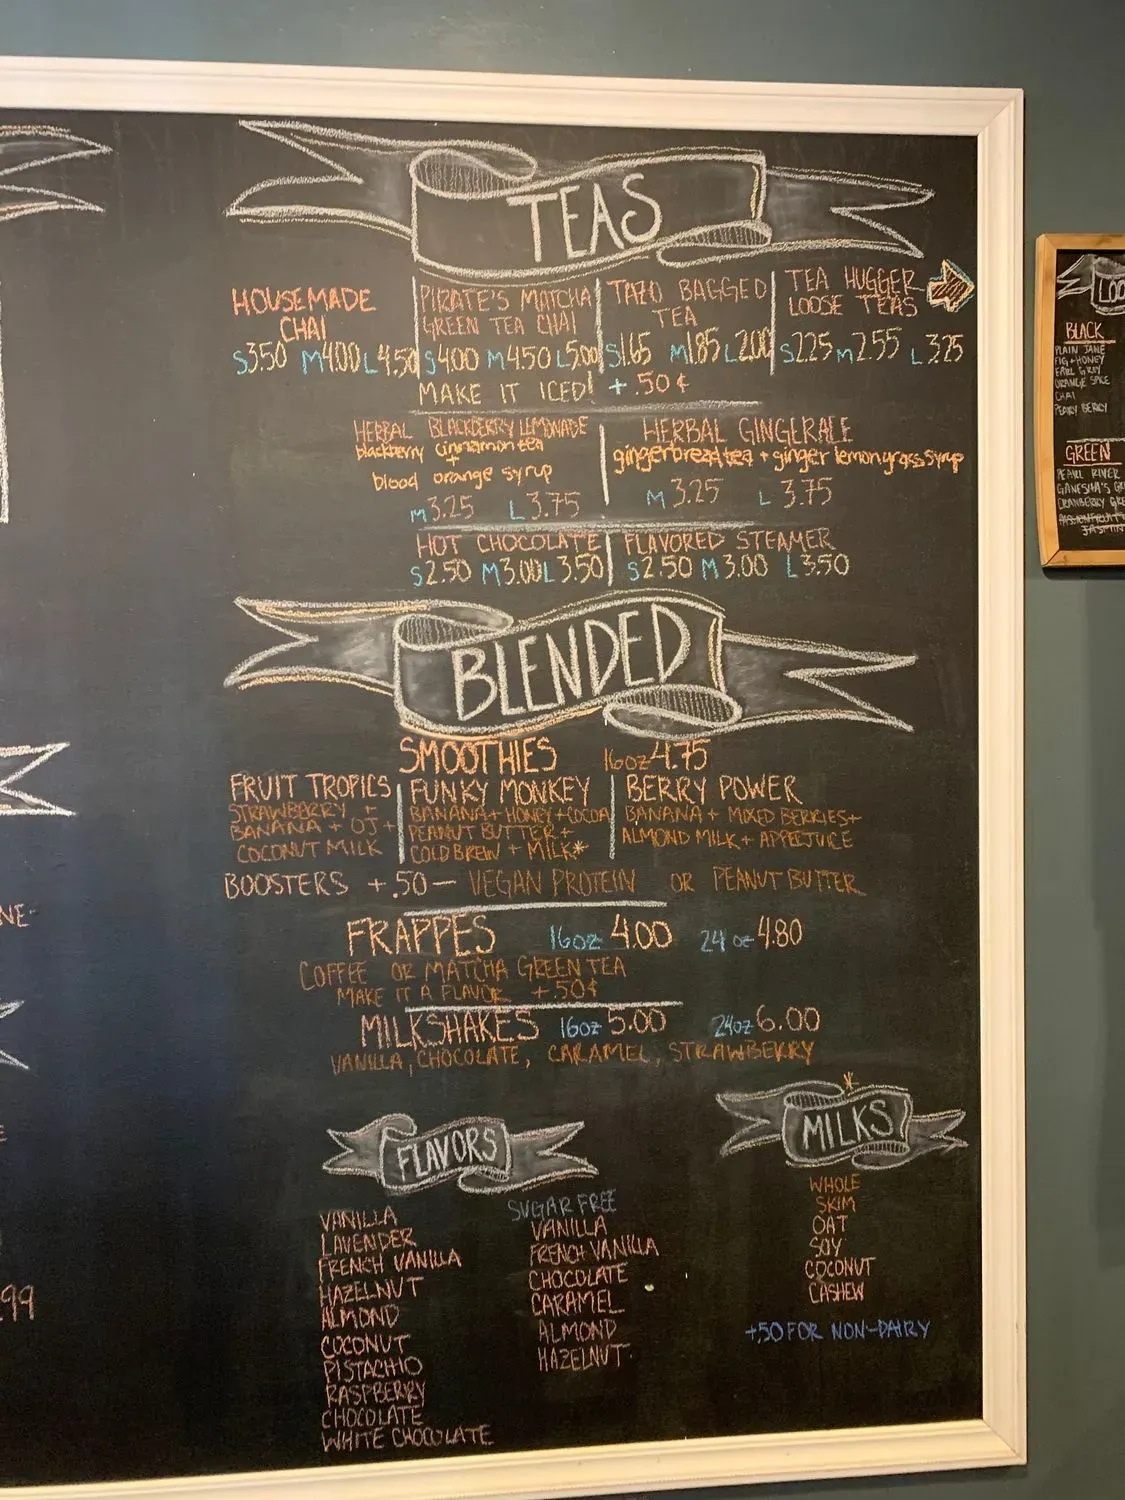 TEAS
HOUSEMADE
CHAI
S3.50 M4.00 L4.50
PIRATE'S MATCHA
GREEN TEA CHAI
S4.00 M4.50 L5.00
TAZO BAGGED
TEA
S1.65 M1.85 L2.00
TEA HUGGER
LOOSE TEAS
S2.25 M2.55 L3.25
MAKE IT ICED! +.50¢
HERBAL BLACKBERRY LEMONADE
blackberry cinnamon tea
+
blood orange syrup
M3.25 L3.75
HERBAL GINGERALE
gingerbread tea + ginger lemongrass syrup
M3.25 L3.75
HOT CHOCOLATE
S2.50 M3.00 L3.50
FLAVORED STEAMER
S2.50 M3.00 L3.50
BLENDED
SMOOTHIES 16oz 4.75
FRUIT TROPICS
STRAWBERRY +
BANANA + OJ +
COCONUT MILK
FUNKY MONKEY
BANANA + HONEY + COCOA
PEANUT BUTTER +
COLD BREW + MILK*
BERRY POWER
BANANA + MIXED BERRIES +
ALMOND MILK + APPLEJUICE
BOOSTERS +.50 — VEGAN PROTEIN OR PEANUT BUTTER
FRAPPES 16oz 4.00 24 oz 4.80
COFFEE OR MATCHA GREEN TEA
MAKE IT A FLAVOR +.50¢
MILKSHAKES 16oz 5.00 24oz 6.00
VANILLA, CHOCOLATE, CARAMEL, STRAWBERRY
FLAVORS
VANILLA
LAVENDER
FRENCH VANILLA
HAZELNUT
ALMOND
COCONUT
PISTACHIO
RASPBERRY
CHOCOLATE
WHITE CHOCOLATE
SUGAR FREE
VANILLA
FRENCH VANILLA
CHOCOLATE
CARAMEL
ALMOND
HAZELNUT
*
MILKS
WHOLE
SKIM
OAT
SOY
COCONUT
CASHEW
+.50 FOR NON-DAIRY
NE-
E
.99
LOO
BLACK
PLAIN JANE
FIG + HONEY
EARL GREY
ORANGE SPICE
CHAI
PEAKY BERRY
GREEN
PEARL RIVER
GANESHA'S GR
CRANBERRY GRE
PASSIONFRUIT
JASMIN